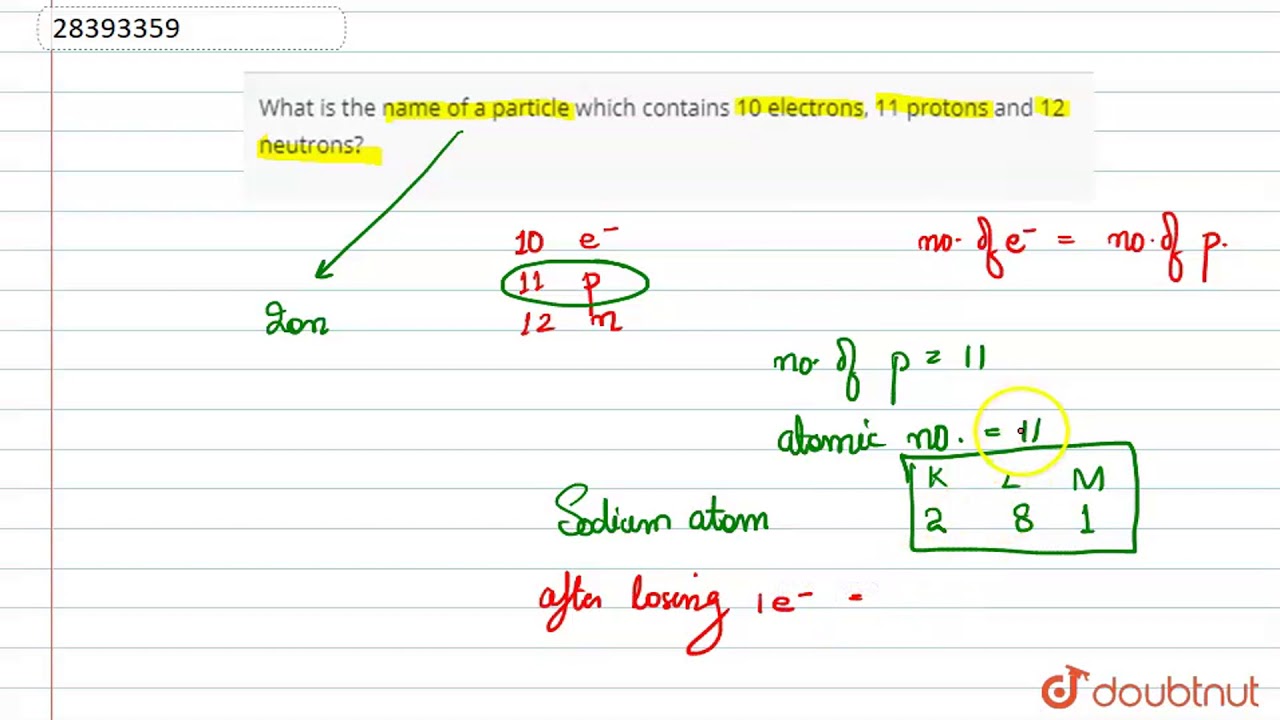 28393359
What is the name of a particle which contains 10 electrons, 11 protons and 12
neutrons?
10 e⁻
no. of e⁻ = no. of p.
11 p
Ion
12 n
no. of p = 11
atomic no. = 11
K L M
Sodium atom
2 8 1
after losing 1e⁻ =
doubtnut